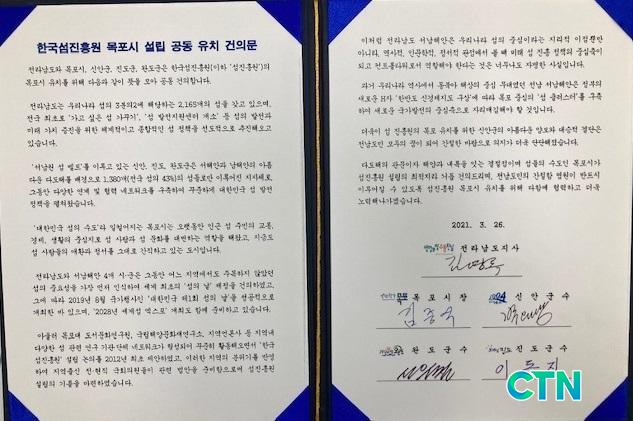 한국섬진흥원 목포시 설립 공동 유치 건의문
전라남도와 목포시, 신안군, 진도군, 완도군은 한국섬진흥원(이하 '섬진흥원')의
목포시 유치를 위해 다음과 같이 뜻을 모아 공동 건의합니다.
전라남도는 우리나라 섬의 3분의2에 해당하는 2,165개의 섬을 갖고 있으며,
전국 최초로 '가고 싶은 섬 가꾸기', '섬 발전지원센터 개소' 등 섬의 발전과
미래 가치 증진을 위한 체계적이고 종합적인 섬 정책을 선도적으로 추진해오고
있습니다.
'서남권 섬 벨트'를 이루고 있는 신안, 진도, 완도군은 서해안과 남해안의 아름
다운 다도해를 배경으로 1,380개(전국 섬의 43%)의 섬들로만 이루어진 지자체로,
그동안 다양한 연계 및 협력 네트워크를 구축하여 꾸준하게 대한민국 섬 발전
정책을 펼쳐왔습니다.
'대한민국 섬의 수도'라 일컬어지는 목포시는 오랫동안 인근 섬 주민의 교통,
경제, 생활의 중심지로 섬 사람과 섬 문화를 대변하는 역할을 해왔고, 지금도
섬 사람들의 애환과 정서를 그대로 간직하고 있는 도시입니다.
전라남도와 서남해안 4개 시·군은 그동안 어느 지역에서도 주목하지 않았던
섬의 중요성을 가장 먼저 인식하여 세계 최초의 '섬의 날' 제정을 건의하였고,
그에 따라 2019년 8월 국가행사인 '대한민국 제1회 섬의 날'을 성공적으로
개최한 바 있으며, '2028년 세계섬 엑스포' 개최도 함께 준비하고 있습니다.
아울러 목포대 도서문화연구원, 국립해양문화재연구소, 지역언론사 등 지역내
다양한 섬 관련 연구 기관·단체 네트워크가 형성되어 꾸준히 활동해오면서 '한국
섬진흥원' 설립 논의를 2012년 최초 제안하였고, 이러한 지역의 분위기를 반영
하여 지역출신 전·현직 국회의원들이 관련 법안을 준비함으로써 섬진흥원
설립의 기틀을 마련하였습니다.
이처럼 전라남도 서남해안은 우리나라 섬의 중심이라는 지리적 이점뿐만
아니라, 역사적, 인문학적, 정서적 관점에서 볼 때 미래 섬 진흥 정책의 중심축이
되고 컨트롤타워로서 역할해야 한다는 것은 너무나도 자명한 사실입니다.
과거 우리나라 역사에서 동북아 해상의 중심 무대였던 전남 서남해안은 정부의
새로운 H자 '한반도 신경제지도 구상'에 따라 목포 중심의 '섬 클러스터'를 구축
하여 새로운 국가발전의 중심축으로 자리매김해야 할 것입니다.
더욱이 섬 진흥원의 목포 유치를 위한 신안군의 아름다운 양보와 대승적 결단은
전남도민 모두의 뜻이 되어 간절한 바람으로 의지가 더욱 단단해졌습니다.
다도해의 관문이자 해양과 내륙을 잇는 결절점이며 섬들의 수도인 목포시가
섬진흥원 설립의 최적지라 거듭 건의드리며, 전남도민의 간절한 염원이 반드시
이루어질 수 있도록 섬진흥원 목포시 유치를 위해 다함께 협력하고 더욱
노력해나가겠습니다.
2021. 3. 26.
전라남도지사
김영록
목포시장
신안군수
김종식
완도군수
진도군수
이동진
CTN